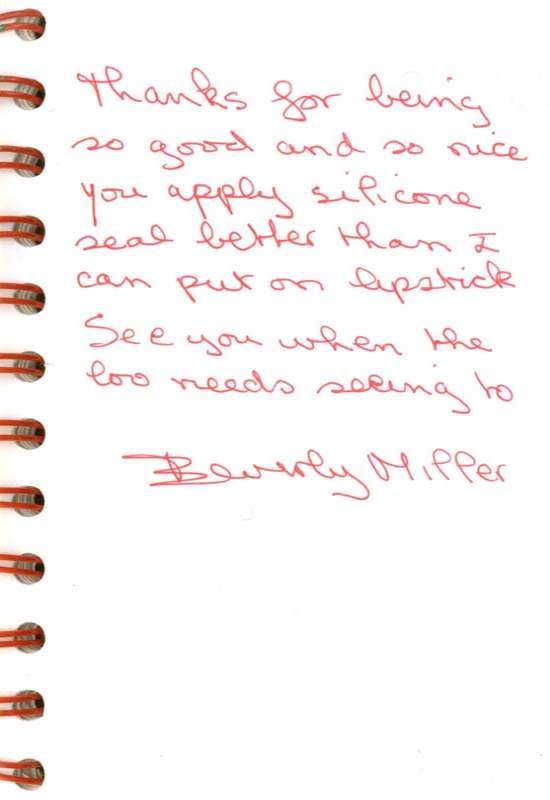 Thanks for being
so good and so nice
you apply silicone
seal better than I
can put on lipstick
See you when the
loo needs seeing to
Beverly Miller